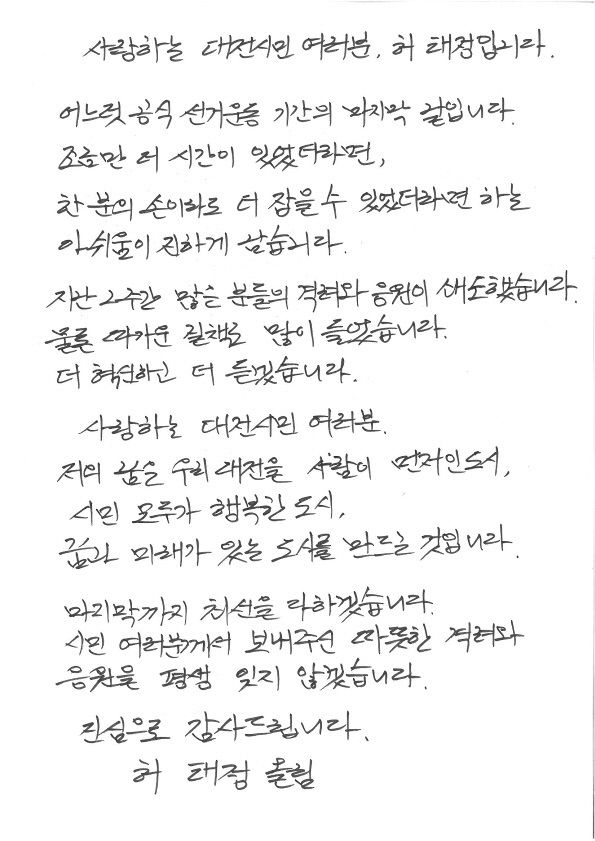 사랑하는 대전시민 여러분, 허 태정입니다.
어느덧 공식 선거운동 기간의 마지막 날입니다.
조금만 더 시간이 있었더라면,
한 분의 손이라도 더 잡을 수 있었더라면 하는
아쉬움이 진하게 남습니다.
지난 2주간 많은 분들의 격려와 응원이 쇄도했습니다.
물론 따가운 질책도 많이 들었습니다.
더 혁신하고 더 듣겠습니다.
사랑하는 대전시민 여러분.
저의 꿈은 우리 대전을 사람이 먼저인 도시,
시민 모두가 행복한 도시,
꿈과 미래가 있는 도시를 만드는 것입니다.
마지막까지 최선을 다하겠습니다.
시민 여러분께서 보내주신 따뜻한 격려와
응원을 평생 잊지 않겠습니다.
진심으로 감사드립니다.
허 태정 올림